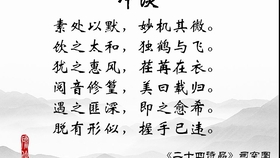 冲淡
素处以默，妙机其微。
饮之太和，独鹤与飞。
犹之惠风，荏苒在衣。
阅音修篁，美曰载归。
遇之匪深，即之愈希。
脱有形似，握手已违。
《二十四诗品》司空图